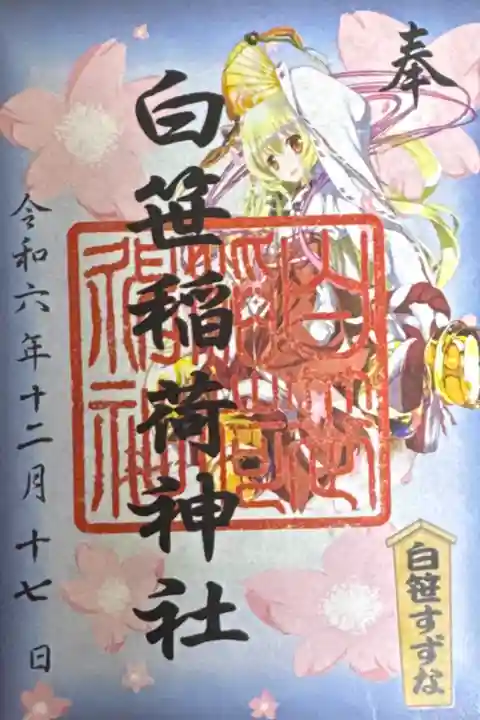 奉
白笹稲荷神社
令和六年十二月十七日
白笹すずな